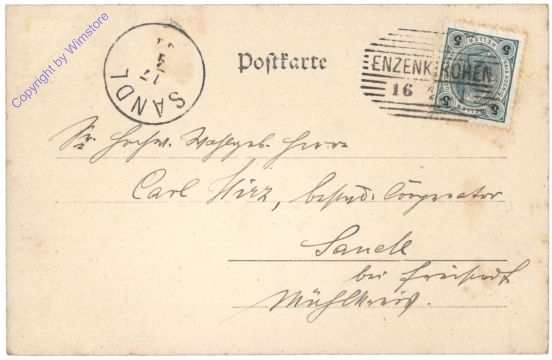 Copyright by Wimstore
SANDL
17
5
Postkarte
5 5
ENZENKIRCHEN
16
HELLER
5 5
Sr. Hochw. Wohlgeb. Herrn
Carl Hirz, Cooperator
Sandl
bei Freistadt
Mühlkreis.